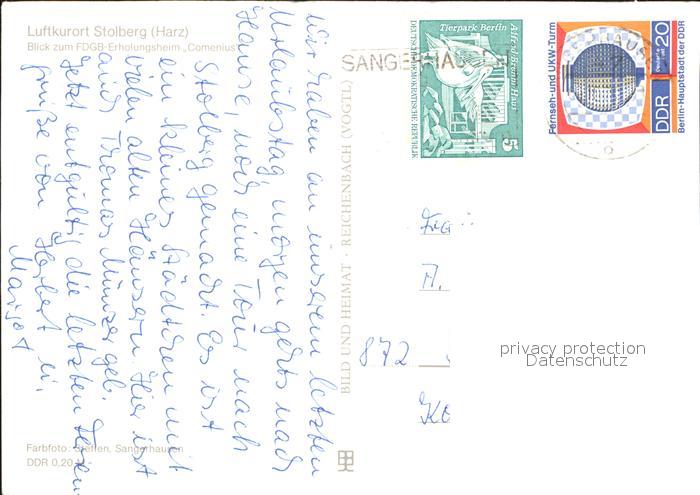 Luftkurort Stolberg (Harz)
Blick zum FDGB-Erholungsheim „Comenius"
Wir haben an unserem letzten
Urlaubstag, morgen gehts nach
Hause, noch eine Tour nach
Stolberg gemacht. Es ist
ein kleines Städtchen mit
vielen alten Häusern. Hier ist
auch Thomas Münzer geb.
Jetzt entgültig die letzten Ferien
grüße von Herbert u.
Margot
Farbfoto: Steffen, Sangerhausen
DDR 0,20 M
BILD UND HEIMAT · REICHENBACH (VOGTL)
SANGERHAUSEN
Tierpark Berlin
Alfred-Brehm-Haus
DEUTSCHE DEMOKRATISCHE REPUBLIK
5
Fernseh- und UKW-Turm
DDR 20
Berlin-Hauptstadt der DDR
872
privacy protection
Datenschutz